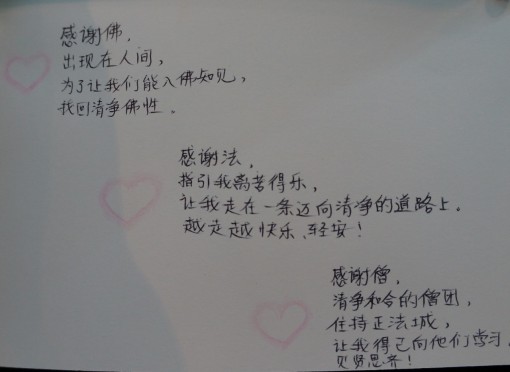 感谢佛，
出现在人间，
为了让我们能入佛知见，
找回清净佛性。
感谢法，
指引我离苦得乐，
让我走在一条迈向清净的道路上。
越走越快乐、轻安！
感谢僧，
清净和合的僧团，
住持正法城，
让我得已向他们学习，
见贤思齐！